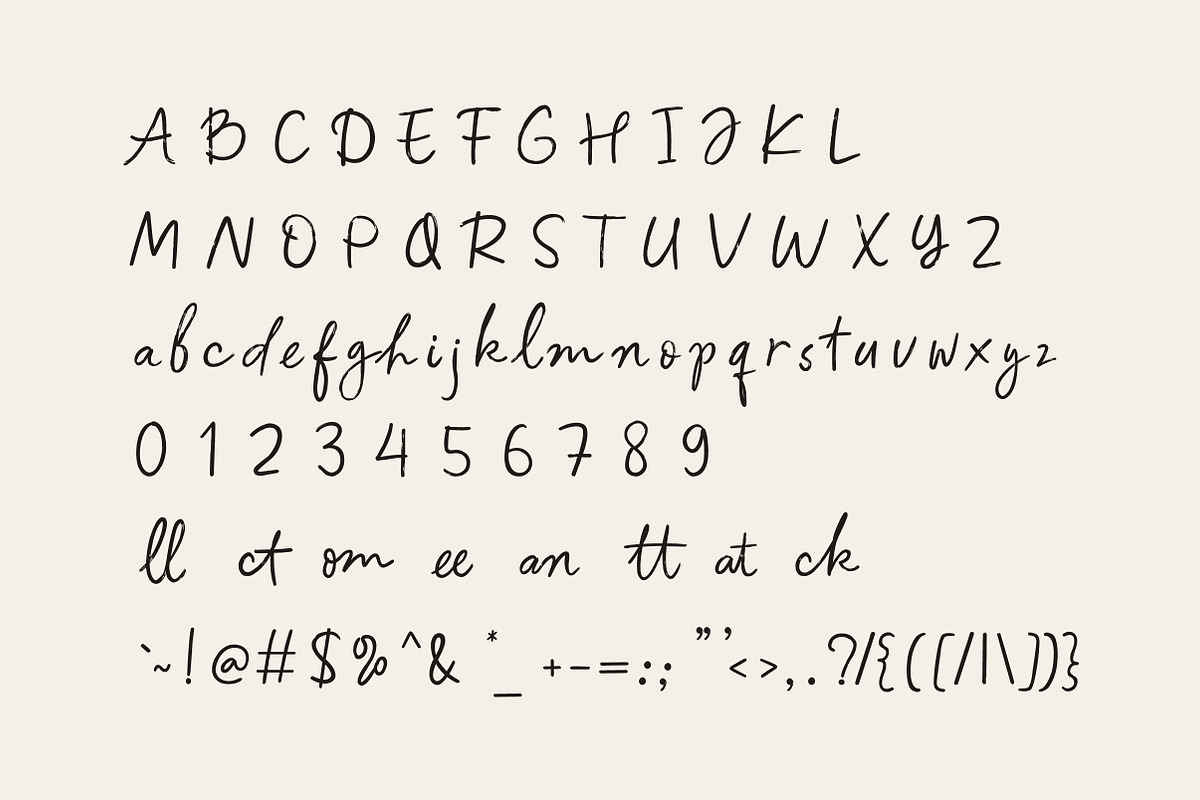 A B C D E F G H I J K L
M N O P Q R S T U V W X Y Z
a b c d e f g h i j k l m n o p q r s t u v w x y z
0 1 2 3 4 5 6 7 8 9
ll ct om ee an tt at ck
`~!@#$%^&*_+-=:;"'<>,.?/{([/|\])}